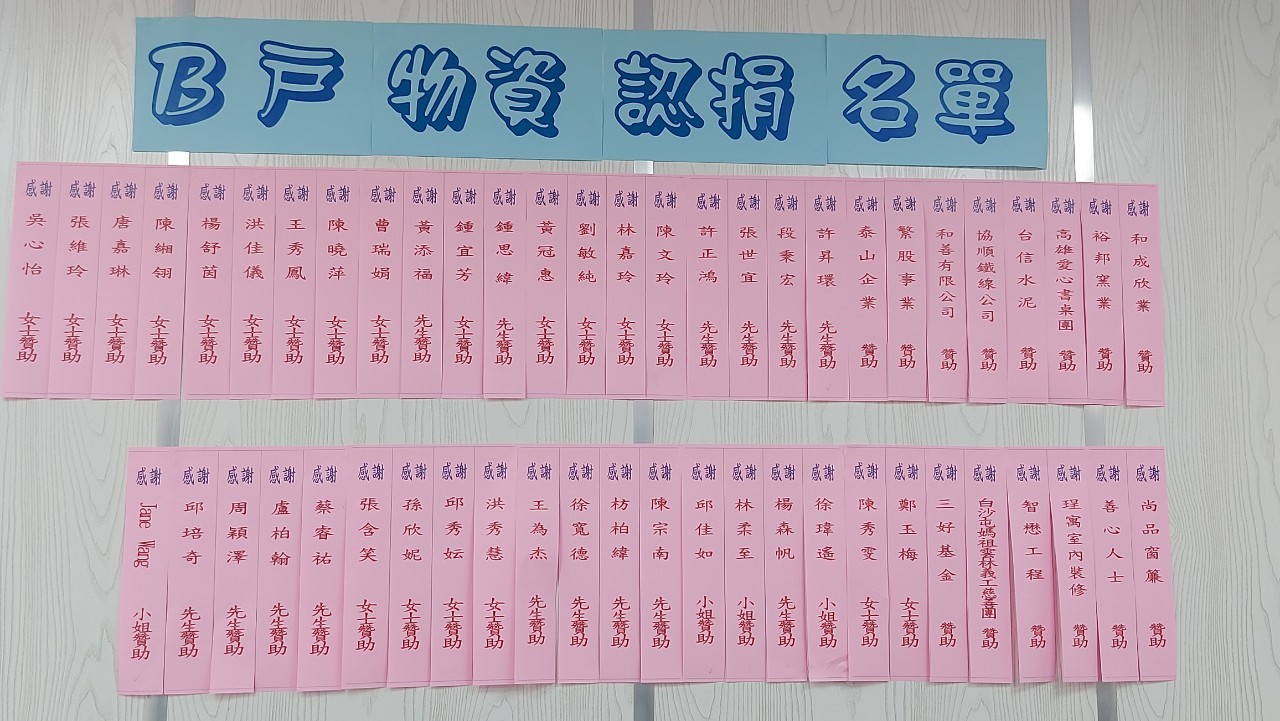 B戶物資認捐名單
感謝 吳心怡 女士贊助
感謝 張維玲 女士贊助
感謝 唐嘉琳 女士贊助
感謝 陳緗翎 女士贊助
感謝 楊舒茵 女士贊助
感謝 洪佳儀 女士贊助
感謝 王秀鳳 女士贊助
感謝 陳曉萍 女士贊助
感謝 曹瑞娟 女士贊助
感謝 黃添福 先生贊助
感謝 鍾宜芳 女士贊助
感謝 鍾思緯 先生贊助
感謝 黃冠惠 女士贊助
感謝 劉敏純 女士贊助
感謝 林嘉玲 女士贊助
感謝 陳文玲 女士贊助
感謝 許正鴻 先生贊助
感謝 張世宜 先生贊助
感謝 段秉宏 先生贊助
感謝 許昇環 先生贊助
感謝 泰山企業 贊助
感謝 繁殷事業 贊助
感謝 和善有限公司 贊助
感謝 協順鐵線公司 贊助
感謝 台信水泥 贊助
感謝 高雄愛心書桌團 贊助
感謝 裕邦窯業 贊助
感謝 和成欣業 贊助
感謝 Jane Wang 小姐贊助
感謝 邱培奇 先生贊助
感謝 周穎澤 先生贊助
感謝 盧柏翰 先生贊助
感謝 蔡睿祐 先生贊助
感謝 張含笑 女士贊助
感謝 孫欣妮 女士贊助
感謝 邱秀妘 女士贊助
感謝 洪秀慧 女士贊助
感謝 王為杰 先生贊助
感謝 徐寬德 先生贊助
感謝 枋柏緯 先生贊助
感謝 陳宗南 先生贊助
感謝 邱佳如 小姐贊助
感謝 林柔至 小姐贊助
感謝 楊森帆 先生贊助
感謝 徐瑋遙 小姐贊助
感謝 陳秀雯 女士贊助
感謝 鄭玉梅 女士贊助
感謝 三好基金 贊助
感謝 白沙屯媽祖雲林義工慈善團 贊助
感謝 智懋工程 贊助
感謝 珵寓室內裝修 贊助
感謝 善心人士 贊助
感謝 尚品窗簾 贊助